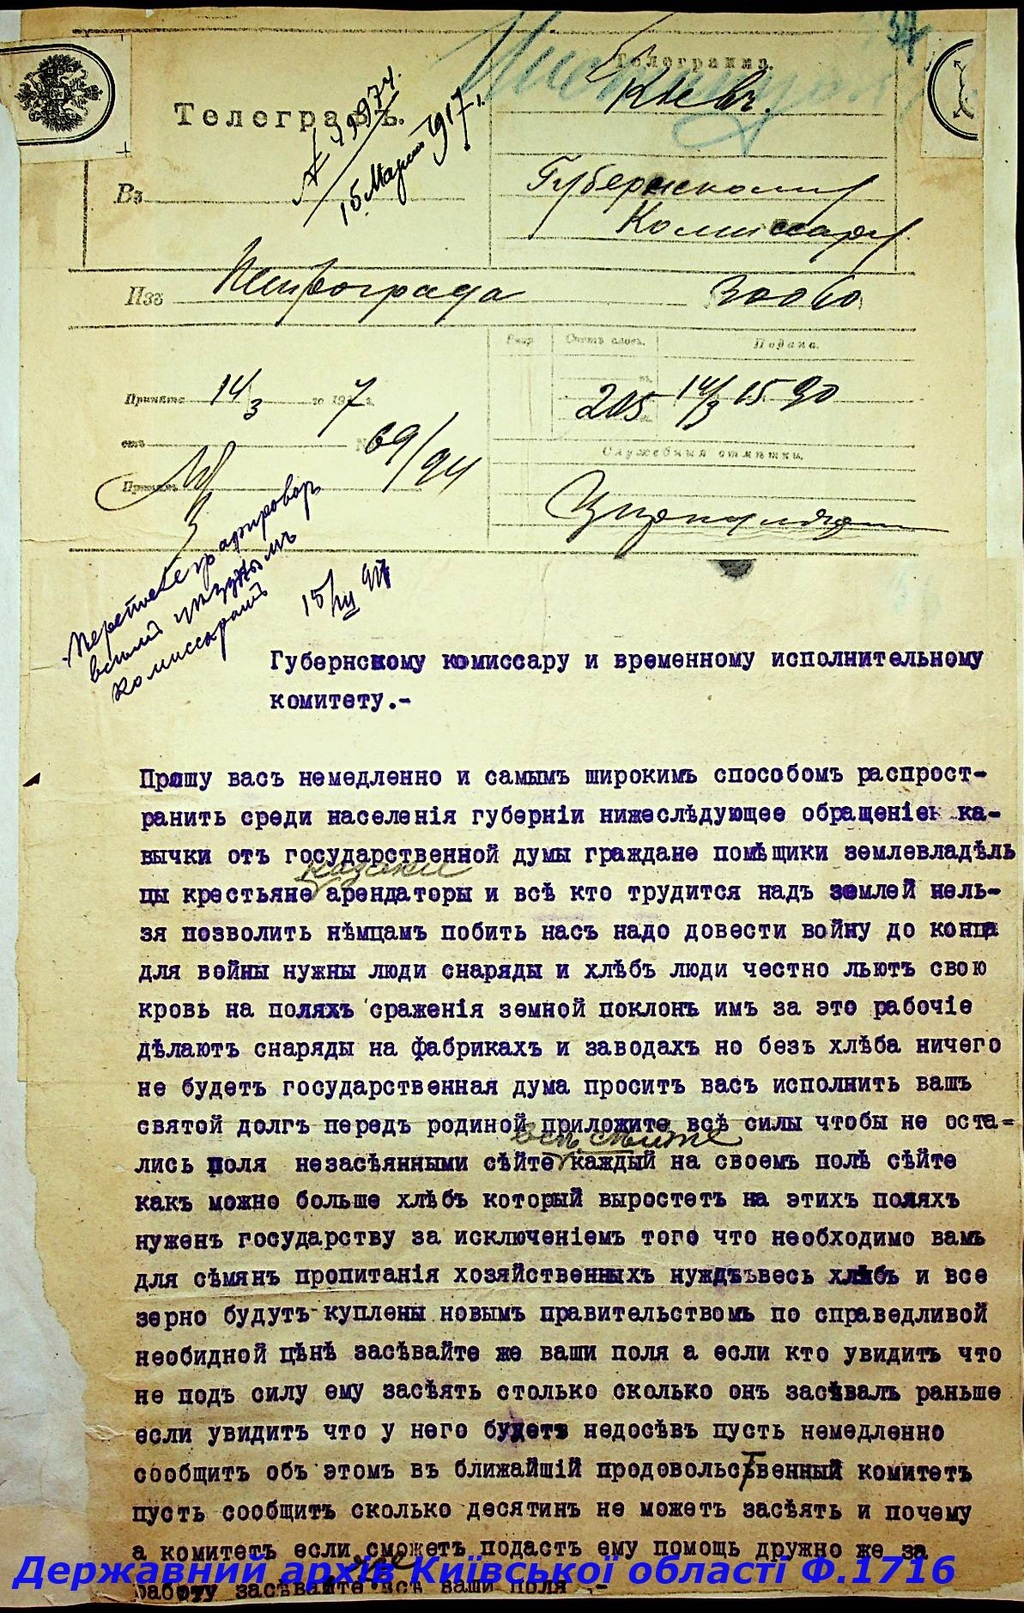 Телеграмма.
Кіевъ.
Телеграмъ.
15 Марта 1917 г.
Въ
Губернскому
Комиссару
Изъ Петрограда
Разр. Счетъ словъ. Подана.
Принята 14/3 го 191 7 г.
205 14/3 15
отъ № 69/94
Служебныя отмѣтки.
Принялъ
Циркулярно
всѣмъ уѣзднымъ
комиссарамъ
15/III 917
Губернскому комиссару и временному исполнительному
комитету.-
Прошу васъ немедленно и самымъ широкимъ способомъ распрост-
ранить среди населенія губерніи нижеслѣдующее обращеніек ка-
вычки отъ государственной думы граждане помѣщики землевладѣль
казаки
цы крестьяне арендаторы и всѣ кто трудится надъ землей нель-
зя позволить нѣмцамъ побить насъ надо довести войну до конца
для войны нужны люди снаряды и хлѣбъ люди честно льютъ свою
кровь на поляхъ сраженія земной поклонъ имъ за это рабочіе
дѣлаютъ снаряды на фабрикахъ и заводахъ но безъ хлѣба ничего
не будетъ государственная дума проситъ васъ исполнить вашъ
святой долгъ передъ родиной приложите всѣ силы чтобы не оста=
лись поля незасѣянными сѣйте каждый на своемъ полѣ сѣйте
какъ можно больше хлѣбъ который выростетъ на этихъ поляхъ
нуженъ государству за исключеніемъ того что необходимо вамъ
для сѣмянъ пропитанія хозяйственныхъ нуждъ весь хлѣбъ и все
зерно будутъ куплены новымъ правительствомъ по справедливой
необидной цѣнѣ засѣвайте же ваши поля а если кто увидитъ что
не подъ силу ему засѣять столько сколько онъ засѣвалъ раньше
если увидитъ что у него будетъ недосѣвъ пусть немедленно
сообщитъ объ этомъ въ ближайшій продовольственный комитетъ
пусть сообщитъ сколько десятинъ не можетъ засѣять и почему
а комитетъ если сможетъ подастъ ему помощь дружно же за
работу засѣвайте всѣ ваши поля .-
Державний архів Київської області Ф.1716